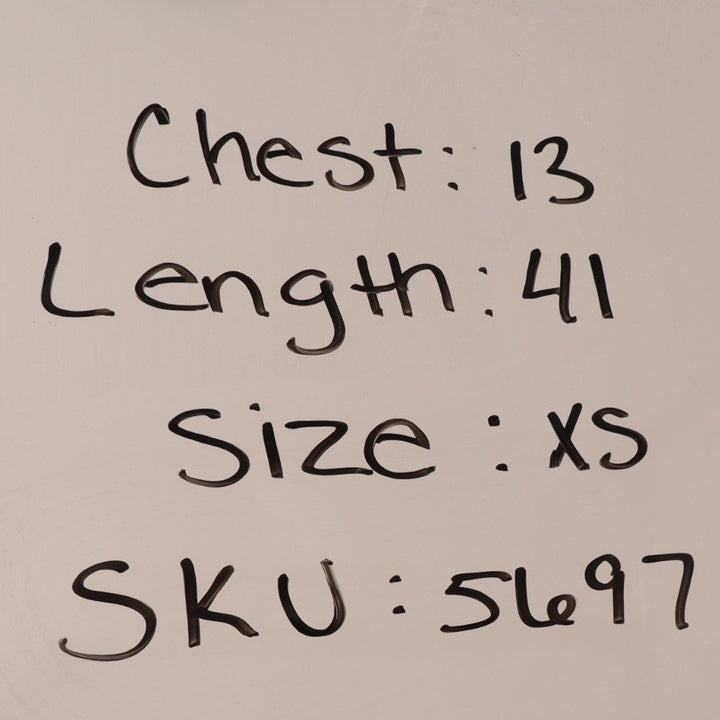 Chest: 13
Length: 41
Size: XS
SKU: 5697